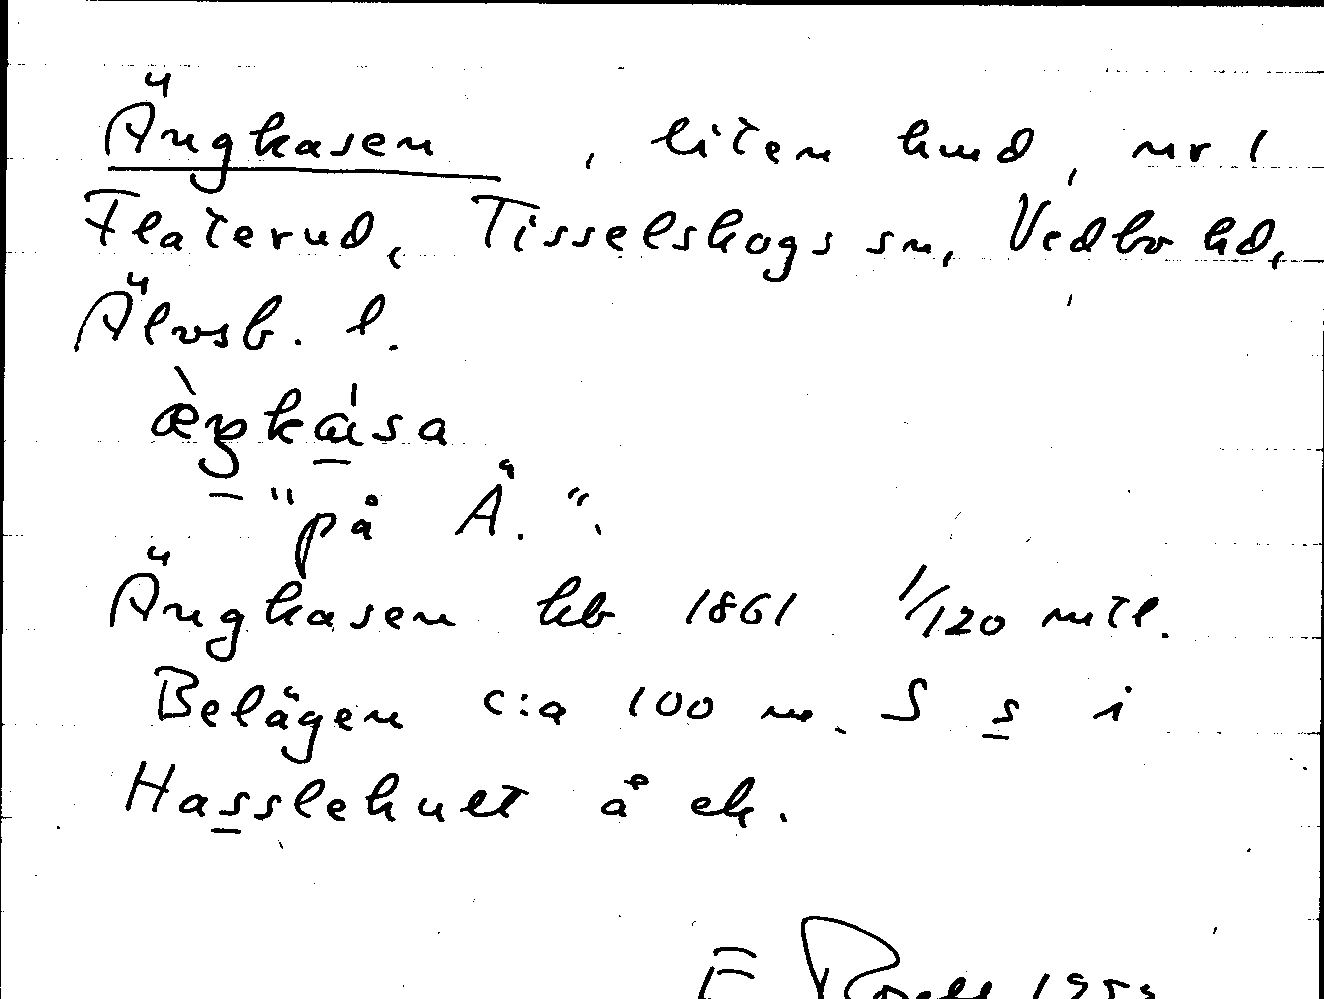 Ängkasen , liten hmd, nr 1
Flaterud, Tisselskogs sn, Vedbo hd,
Älvsb. l.
"på Ä.".
Ängkasen hb 1861 1/120 mtl.
Belägen c:a 100 m. S s i
Hasslehult å ek.
E 195